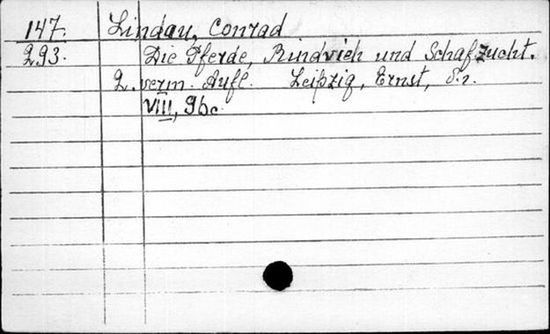 147. Lindau, Conrad
293. Die Pferde, Rindvieh und Schafzucht.
2. verm. Aufl. Leipzig, Ernst,
VIII, 96c